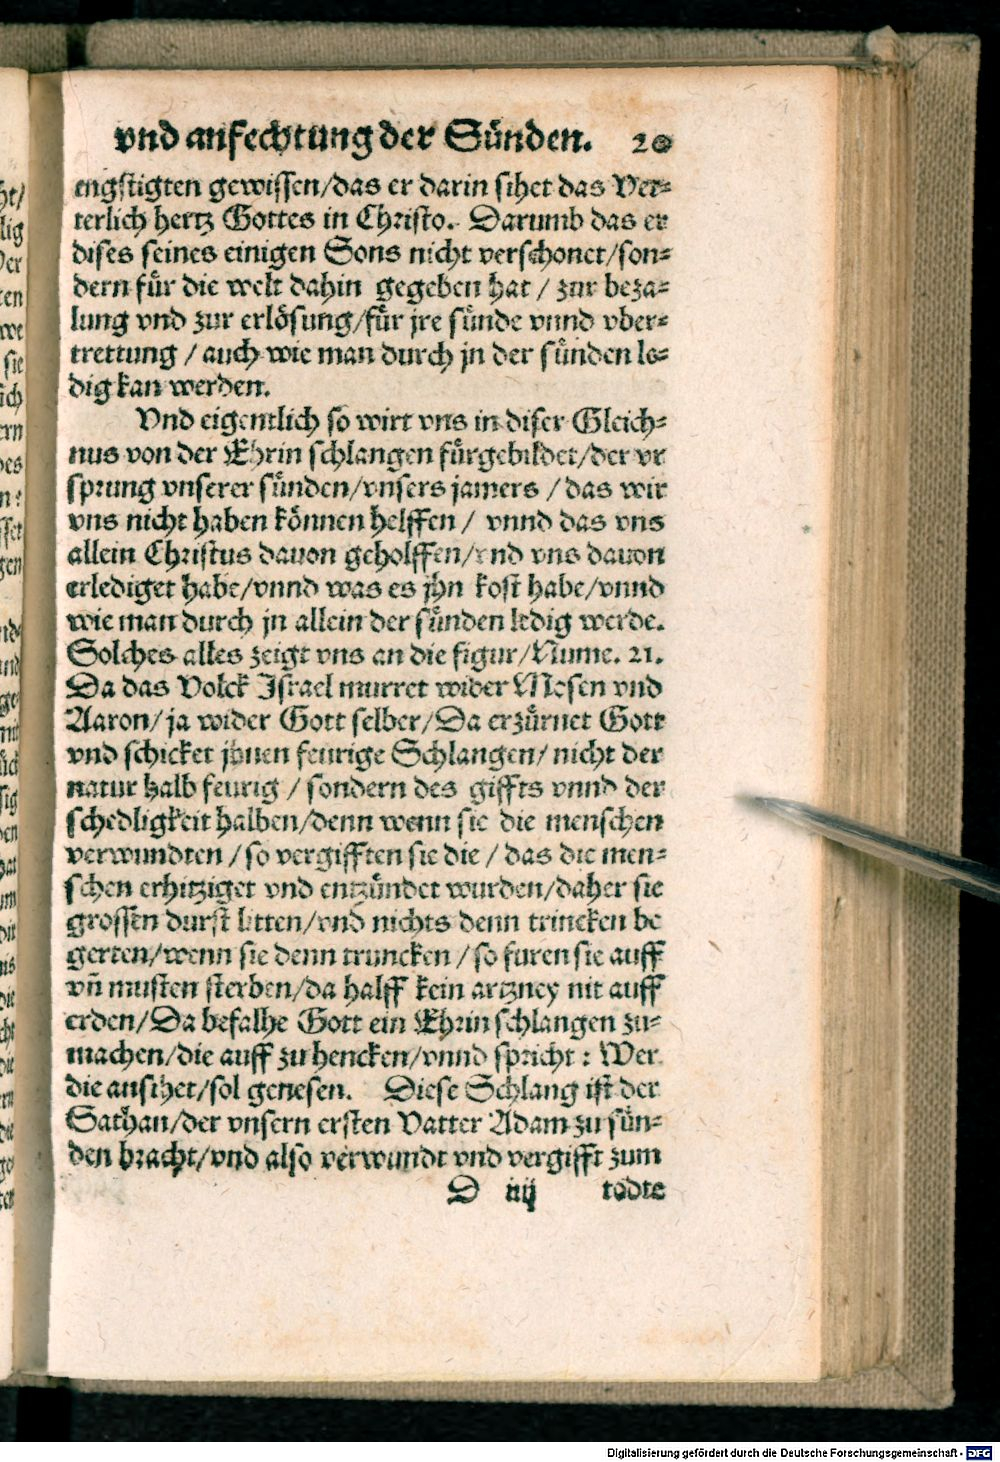 vnd anfechtung der Sünden. 20
engstigten gewissen/das er darin sihet das Vet-
terlich hertz Gottes in Christo. Darumb das er
dises seines einigen Sons nicht verschonet/son-
dern für die welt dahin gegeben hat / zur beza-
lung vnd zur erlösung/für jre sünde vnnd vber-
trettung / auch wie man durch jn der sünden le-
dig kan werden.
Vnd eigentlich so wirt vns in diser Gleich-
nus von der Ehrin schlangen fürgebildet/der vr
sprung vnserer sünden/vnsers jamers / das wir
vns nicht haben können helffen / vnnd das vns
allein Christus dauon geholffen/vnd vns dauon
erlediget habe/vnnd was es jhn kost habe/vnnd
wie man durch jn allein der sünden ledig werde.
Solches alles zeigt vns an die figur/Nume. 21.
Da das Volck Israel murret wider Mosen vnd
Aaron/ ja wider Gott selber/Da erzürnet Gott
vnd schicket jhnen feurige Schlangen/ nicht der
natur halb feurig / sondern des giffts vnnd der
schedligkeit halben/denn wenn sie die menschen
verwundten / so vergifften sie die / das die men-
schen erhitziget vnd entzündet wurden/daher sie
grossen durst litten/vnd nichts denn trincken be
gerten/wenn sie denn truncken / so furen sie auff
vñ musten sterben/da halff kein artzney nit auff
erden/Da befalhe Gott ein Ehrin schlangen zu-
machen/die auff zu hencken/vnnd spricht : Wer
die ansihet/sol genesen. Diese Schlang ist der
Sathan/der vnsern ersten Vatter Adam zu sün-
den bracht/vnd also verwundt vnd vergifft zum
D iiij todte
Digitalisierung gefördert durch die Deutsche Forschungsgemeinschaft - DFG